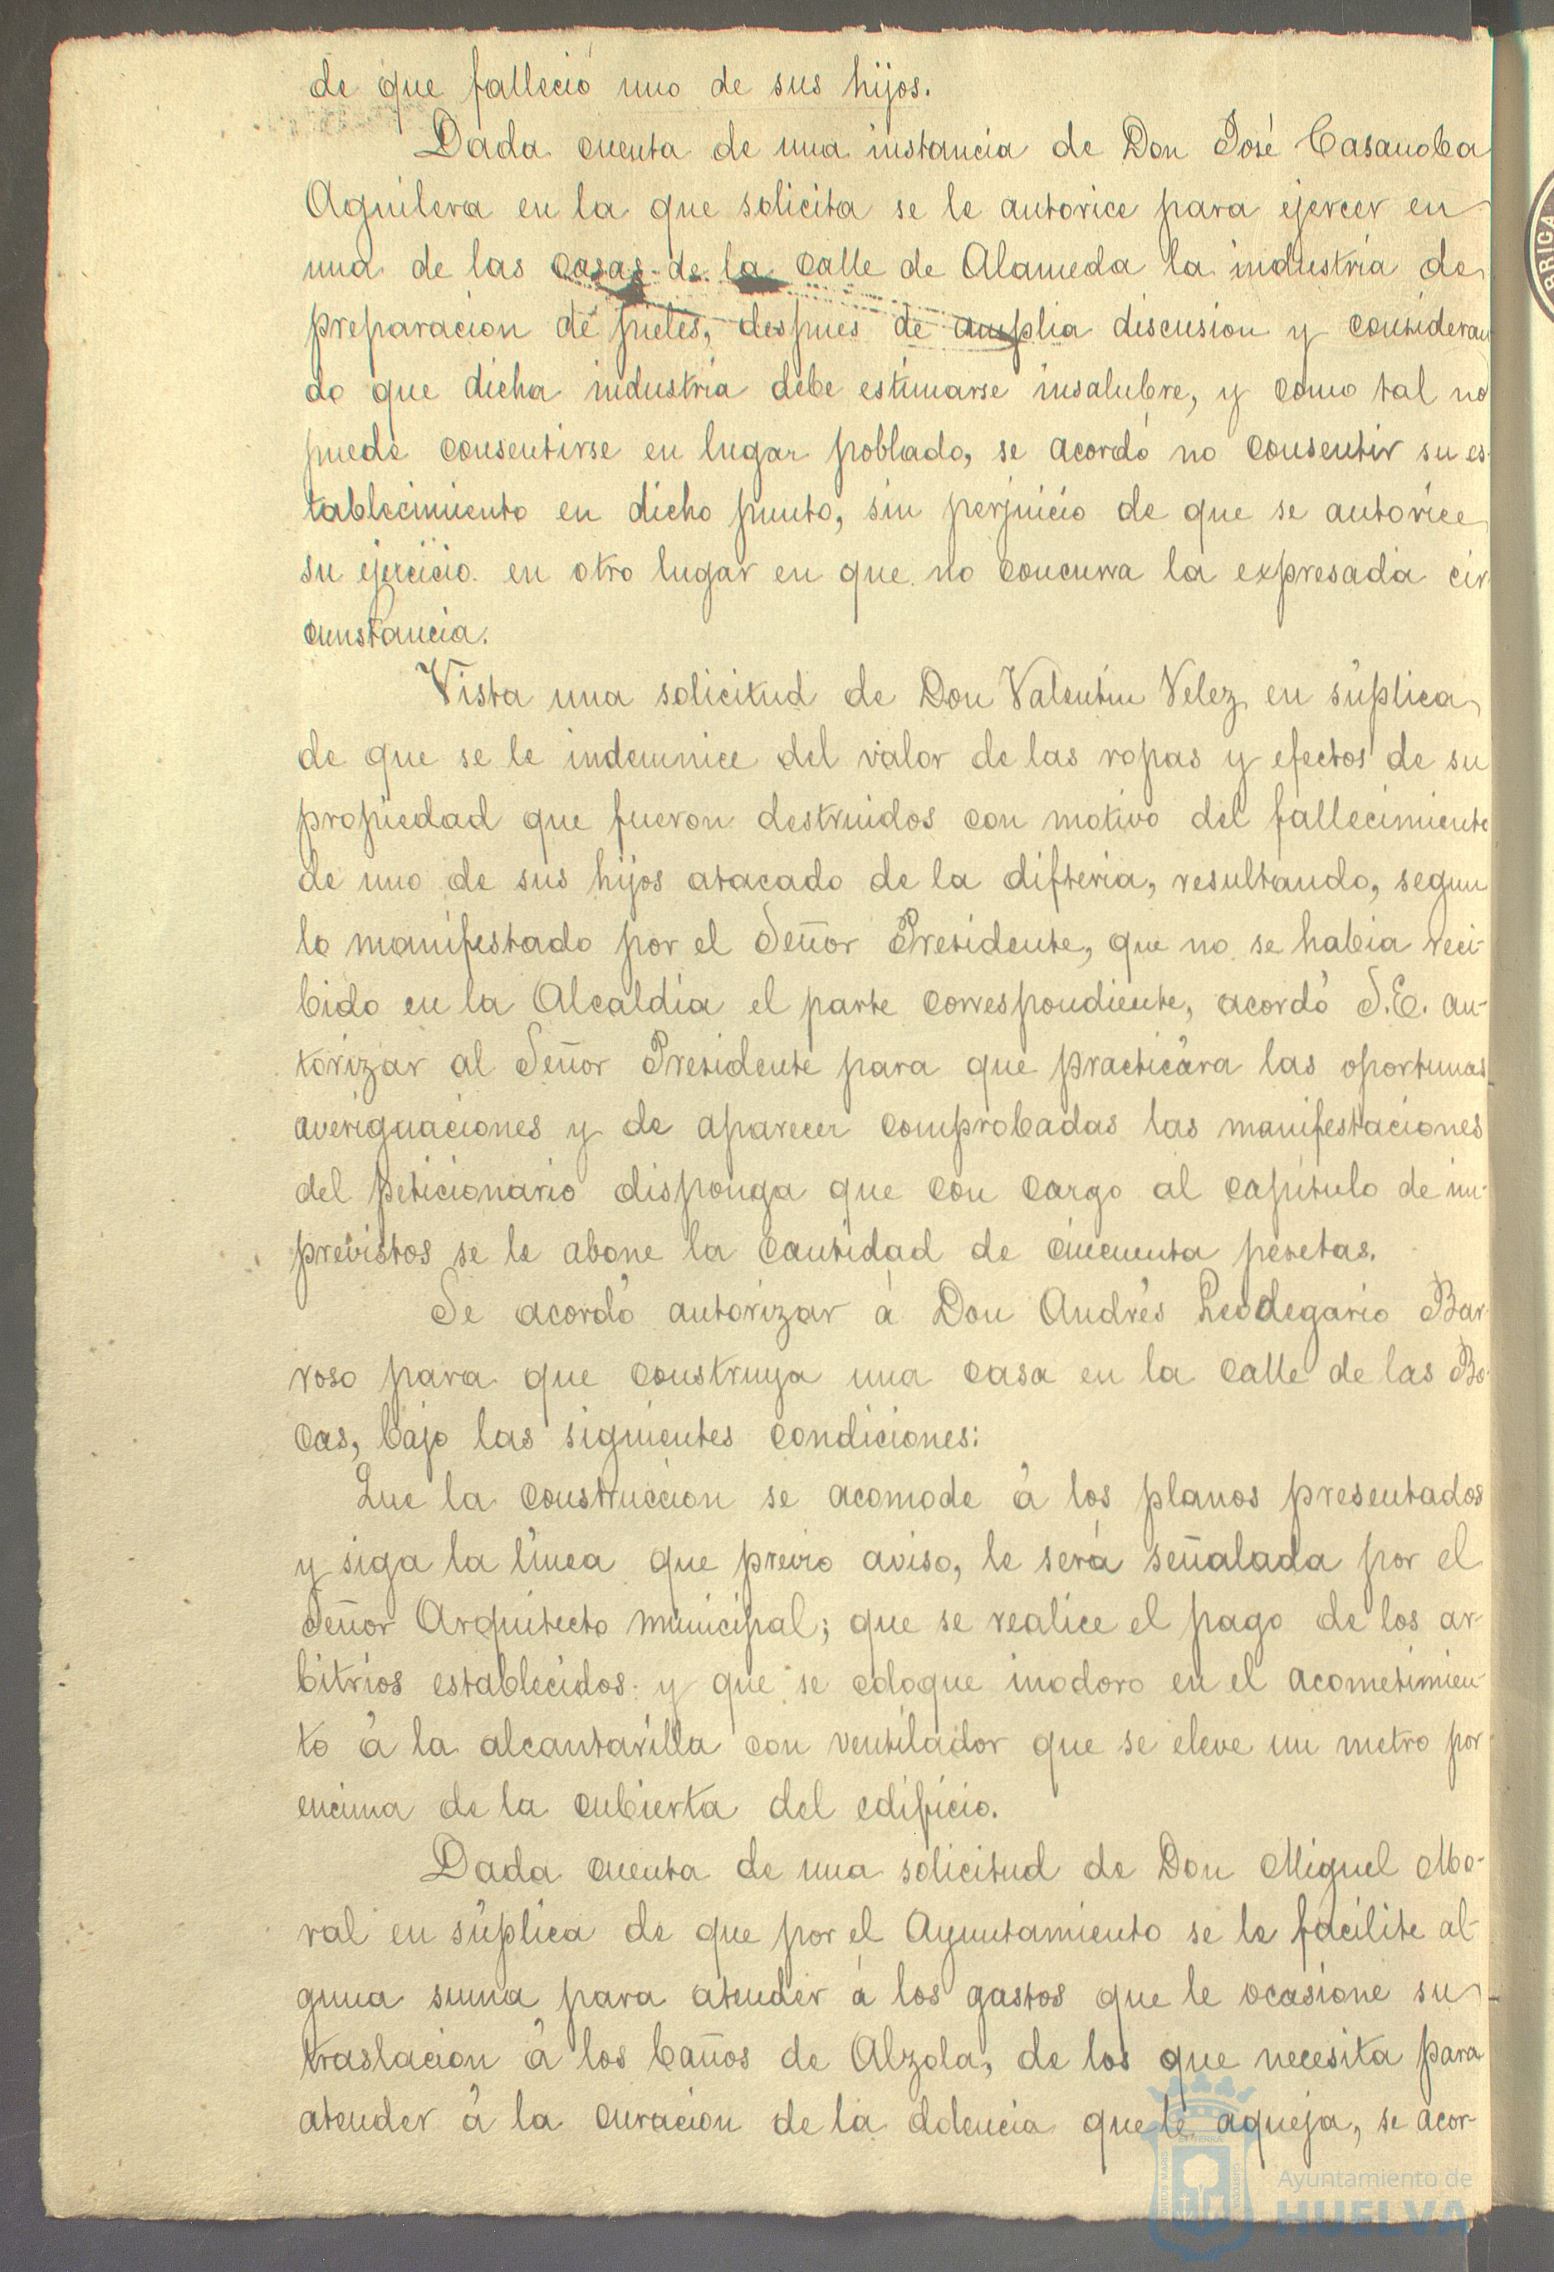 de que falleció uno de sus hijos.
Dada cuenta de una instancia de Don José Casanoba
Aguilera en la que solicita se le autorice para ejercer en
una de las casas de la calle de Alameda la industria de
preparacion de pieles, despues de amplia discusion y consideran
do que dicha industria debe estimarse insalubre, y como tal no
puede consentirse en lugar poblado, se acordó no consentir su es-
tablecimiento en dicho punto, sin perjuicio de que se autorice
su ejercicio en otro lugar en que no concurra la expresada cir
cunstancia.
Vista una solicitud de Don Valentin Velez en súplica
de que se le indemnice del valor de las ropas y efectos de su
propiedad que fueron destruidos con motivo del fallecimiento
de uno de sus hijos atacado de la difteria, resultando, segun
lo manifestado por el Señor Presidente, que no se habia reci-
bido en la Alcaldía el parte correspondiente, acordó S.E. au-
torizar al Señor Presidente para que practicára las oportunas
averiguaciones y de aparecer comprobadas las manifestaciones
del peticionario disponga que con cargo al capítulo de im-
previstos se le abone la cantidad de cincuenta pesetas.
Se acordó autorizar á Don Andrés Leodegario Bar-
roso para que construya una casa en la calle de las Bo-
cas, bajo las siguientes condiciones:
Que la construccion se acomode á los planos presentados
y siga la línea que previo aviso, le será señalada por el
Señor Arquitecto municipal; que se realice el pago de los ar-
bitrios establecidos y que se coloque inodoro en el acometimien-
to á la alcantarilla con ventilador que se eleve un metro por
encima de la cubierta del edificio.
Dada cuenta de una solicitud de Don Miguel Mo-
ral en súplica de que por el Ayuntamiento se le facilite al-
guna suma para atender á los gastos que le ocasione su
traslacion á los baños de Alzola, de los que necesita para
atender á la curacion de la dolencia que le aqueja, se acor-
Ayuntamiento de
HUELVA